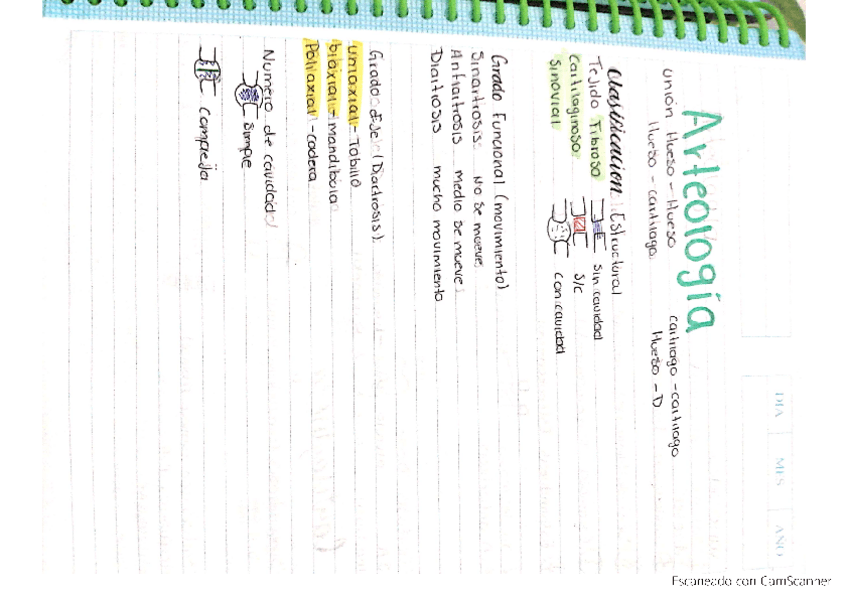 DIA MES AÑO
Arteología
Unión Hueso - Hueso cartílago - cartílago
Hueso - cartílago Hueso - D
Clasificación: Estructural
Tejido Fibroso Sin cavidad
Cartilaginoso S/C
Sinovial con cavidad
Grado Funcional (movimiento)
Sinartrosis No se mueve
Anfiartrosis medio se mueve
Diartrosis mucho movimiento
Grados eje (Diartrosis)
Uniaxial - Tobillo
biaxial - Mandíbula
Poliaxial - cadera
Número de cavidad
Simple
Compleja
Escaneado con CamScanner